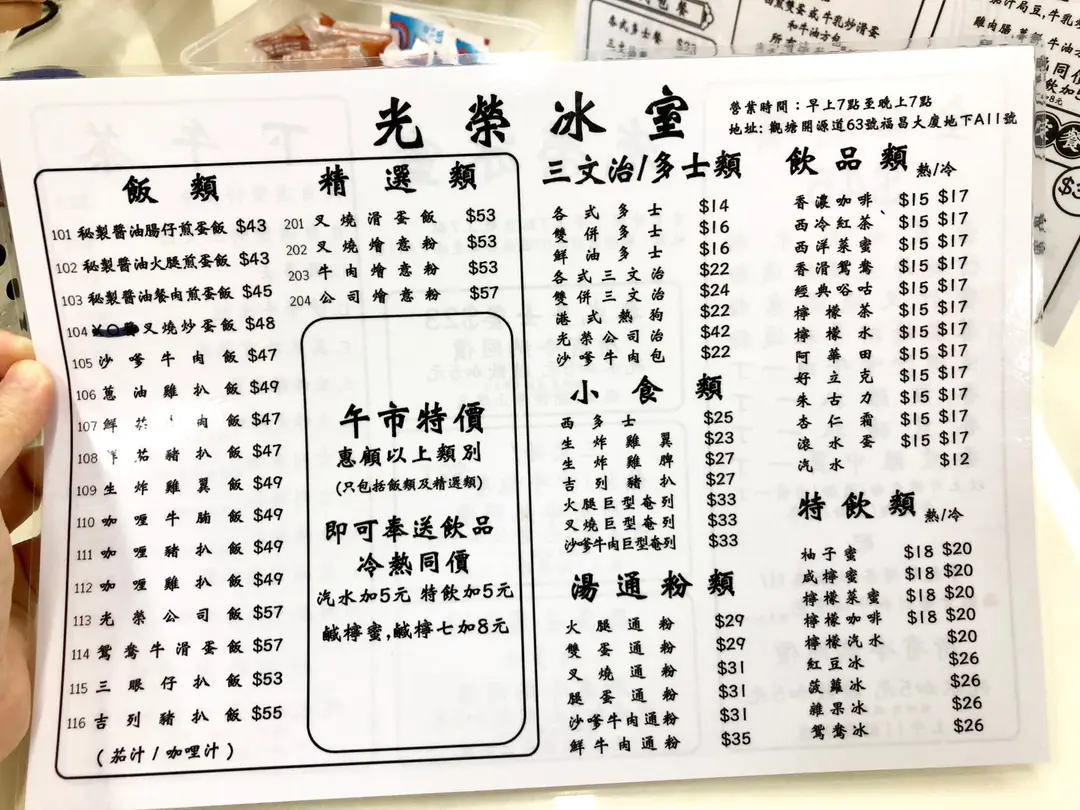 光榮冰室
營業時間：早上7點至晚上7點
地址: 觀塘開源道63號福昌大廈地下A11號
飯類
101 秘製醬油腸仔煎蛋飯 $43
102 秘製醬油火腿煎蛋飯 $43
103 秘製醬油餐肉煎蛋飯 $45
104 叉燒炒蛋飯 $48
105 沙爹牛肉飯 $47
106 蔥油雞扒飯 $49
107 鮮 肉飯 $47
108 茄豬扒飯 $47
109 生炸雞翼飯 $49
110 咖喱牛腩飯 $49
111 咖喱豬扒飯 $49
112 咖喱雞扒飯 $49
113 光榮公司飯 $57
114 鴛鴦牛滑蛋飯 $57
115 三眼仔扒飯 $53
116 吉列豬扒飯 $55
(茄汁/咖哩汁)
精選類
201 叉燒滑蛋飯 $53
202 叉燒燴意粉 $53
203 牛肉燴意粉 $53
204 公司燴意粉 $57
午市特價
惠顧以上類別
(只包括飯類及精選類)
即可奉送飲品
冷熱同價
汽水加5元 特飲加5元
鹹檸蜜,鹹檸七加8元
三文治/多士類
各式多士 $14
雙併多士 $16
鮮油多士 $16
各式三文治 $22
雙併三文治 $24
港式熱狗 $22
光榮公司治 $42
沙爹牛肉包 $22
小食類
西多士 $25
生炸雞翼 $23
生炸雞脾 $27
吉列豬扒 $27
火腿巨型奄列 $33
叉燒巨型奄列 $33
沙爹牛肉巨型奄列 $33
湯通粉類
火腿通粉 $29
雙蛋通粉 $29
叉燒通粉 $31
腿蛋通粉 $31
沙爹牛肉通粉 $31
鮮牛肉通粉 $35
飲品類 熱/冷
香濃咖啡 $15 $17
西冷紅茶 $15 $17
西洋菜蜜 $15 $17
香滑鴛鴦 $15 $17
經典唂咕 $15 $17
檸檬茶 $15 $17
檸檬水 $15 $17
阿華田 $15 $17
好立克 $15 $17
朱古力 $15 $17
杏仁霜 $15 $17
滾水蛋 $15 $17
汽水 $12
特飲類 熱/冷
柚子蜜 $18 $20
咸檸蜜 $18 $20
檸檬菜蜜 $18 $20
檸檬咖啡 $18 $20
檸檬汽水 $20
紅豆冰 $26
菠蘿冰 $26
雜果冰 $26
鴛鴦冰 $26